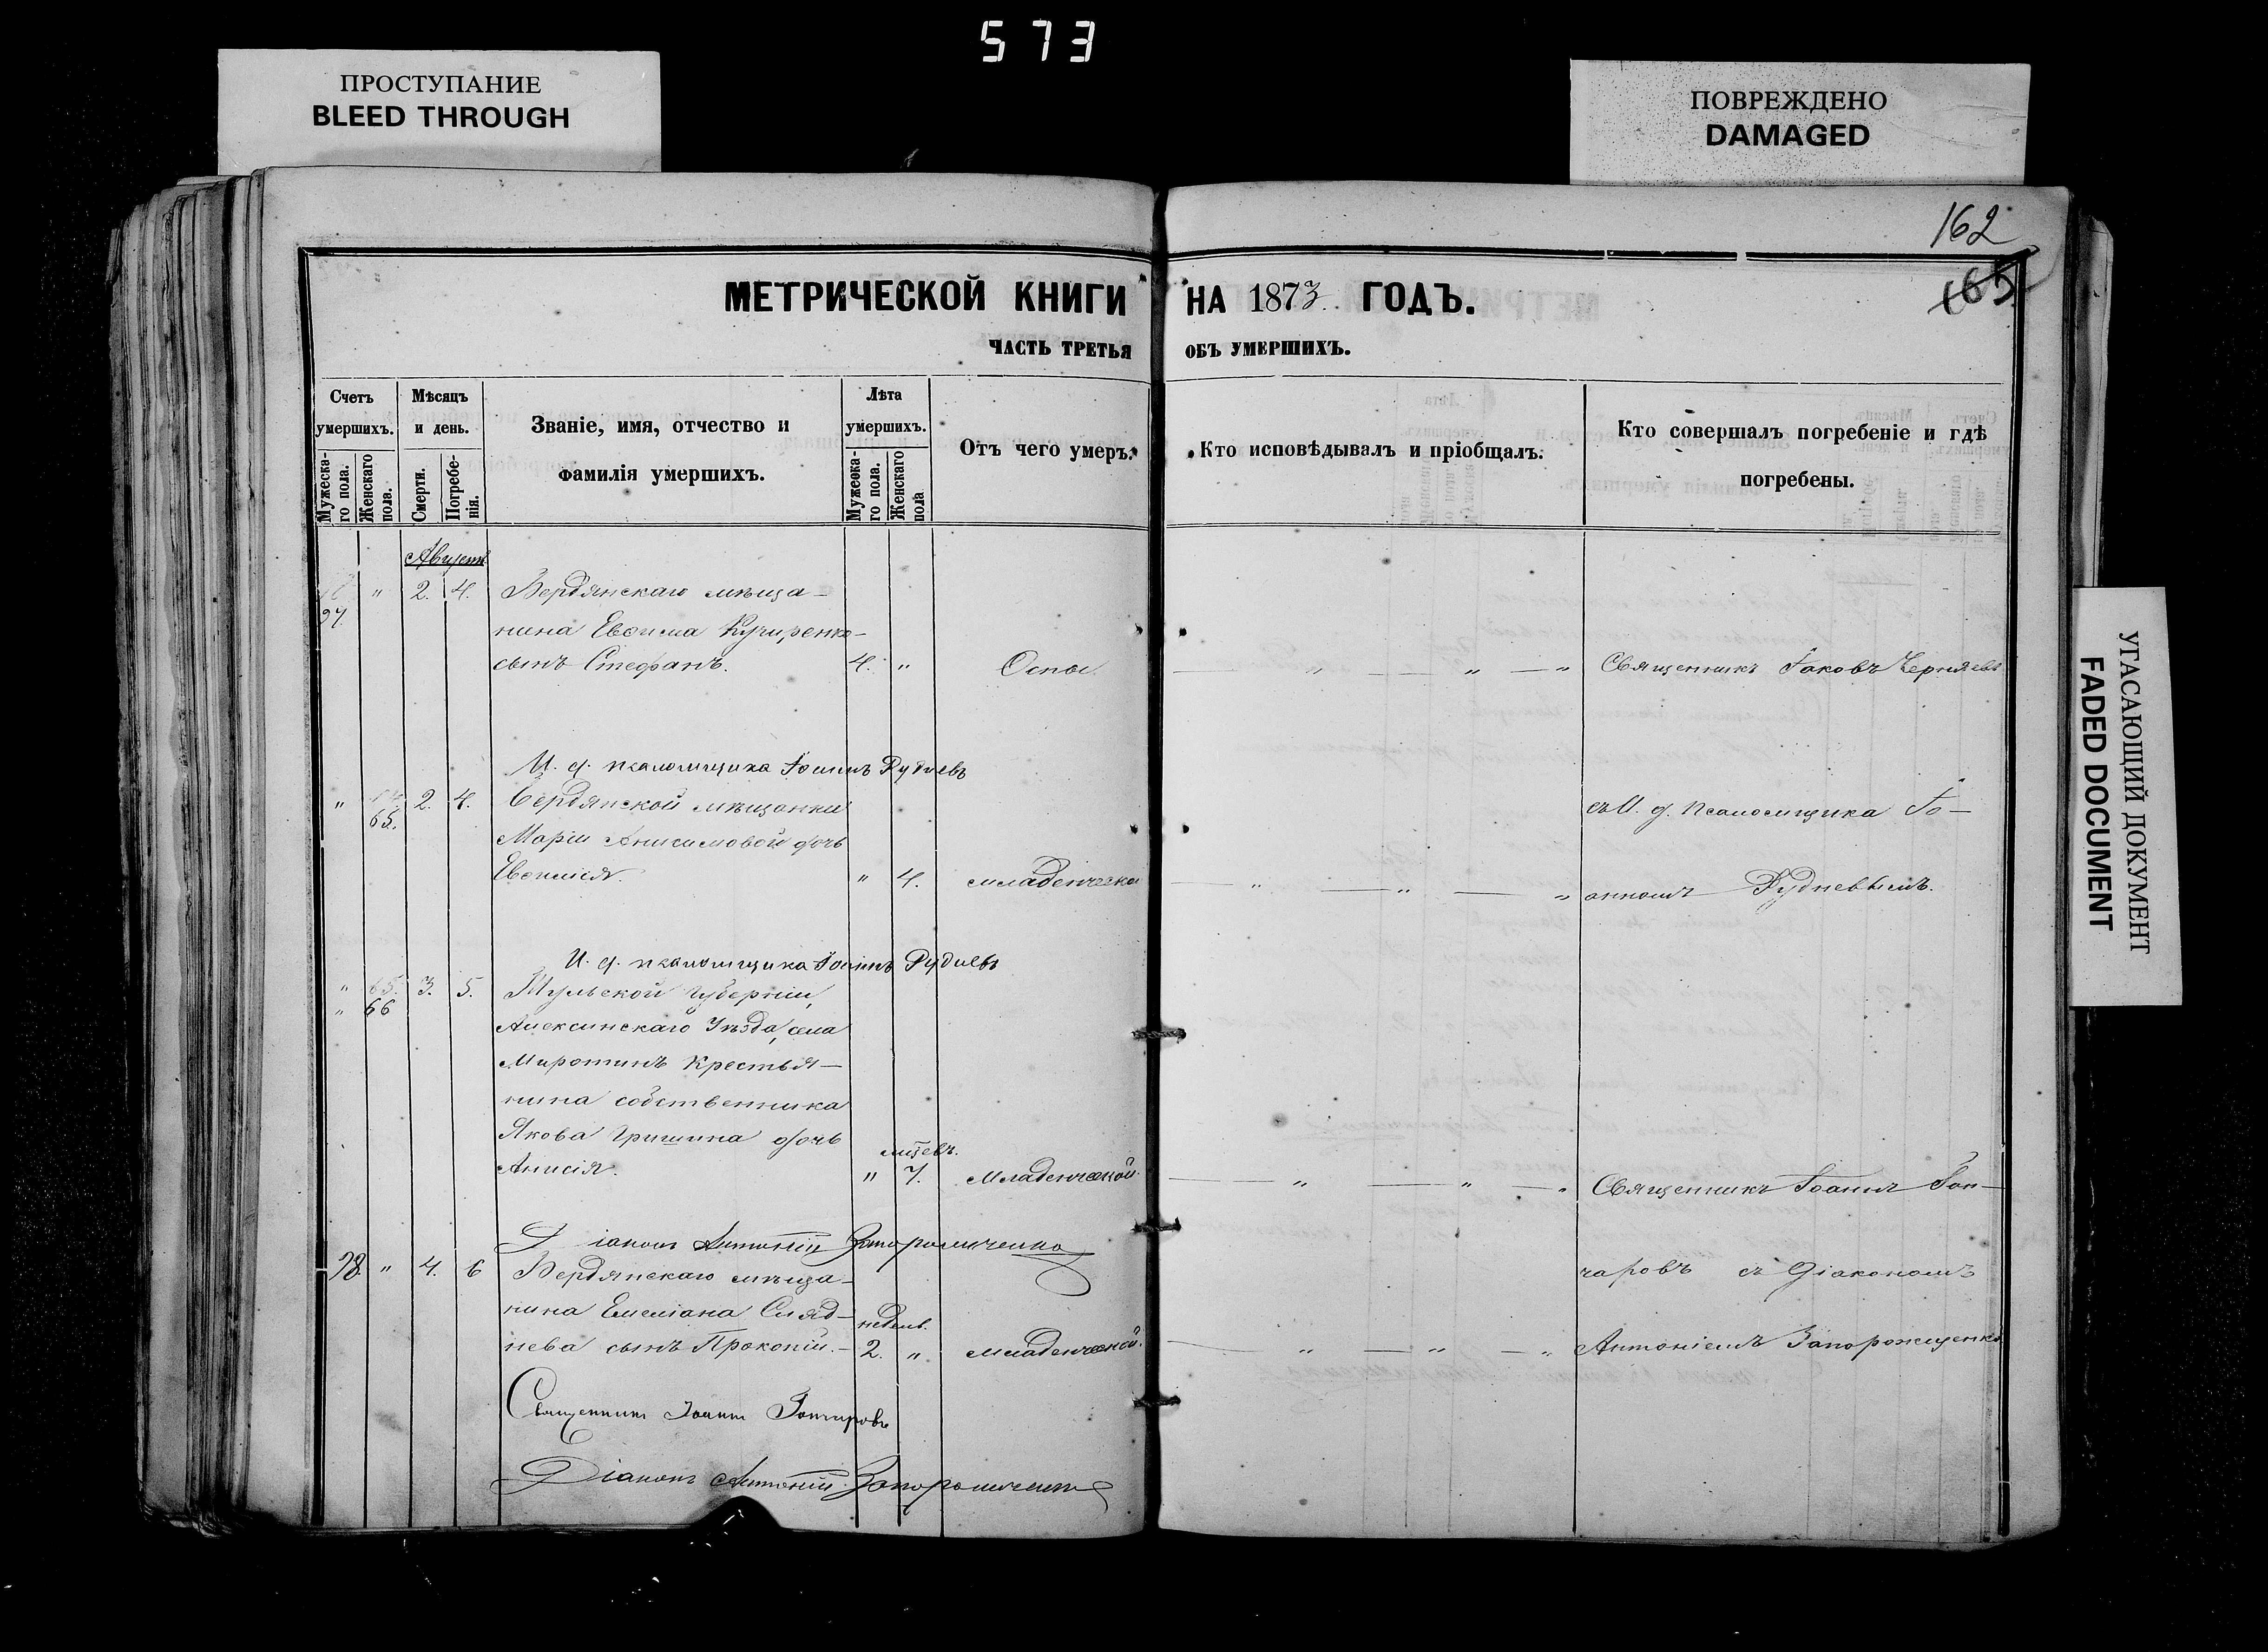 573
ПРОСТУПАНИЕ
BLEED THROUGH
ПОВРЕЖДЕНО
DAMAGED
УГАСАЮЩИЙ ДОКУМЕНТ
FADED DOCUMENT
162
165
МЕТРИЧЕСКОЙ КНИГИ НА 1873 ГОДЪ.
ЧАСТЬ ТРЕТЬЯ ОБЪ УМЕРШИХЪ.
Счетъ умершихъ.
Мужеска-го пола.
Женскаго пола.
Мѣсяцъ и день.
Смерти.
Погребе-нія.
Званіе, имя, отчество и
фамилія умершихъ.
Лѣта умершихъ.
Мужеска-го пола.
Женскаго пола
Отъ чего умеръ.
Кто исповѣдывалъ и пріобщалъ.
Кто совершалъ погребеніе и гдѣ
погребены.
Августъ
97 " 2. 4. Бердянскаго мѣща-
нина Евѳима Кучиренко
сынъ Стефанъ. 4. " Оспы. " " " Священникъ Іаковъ Черняевъ
И. д. псаломщика Іоаннъ Рудневъ
" 65. 2. 4. Бердянской мѣщанки съ И. д. псаломщика Іо-
Маріи Анисимовой дочь
Евѳимія. " 4. младенческой " " " анномъ Рудневымъ.
И. д. псаломщика Іоаннъ Рудневъ
" 65. 3. 5. Тульской губерніи,
" 66
Алексинскаго Уѣзда, села
Миротинъ крестья-
нина собственника
Якова Гришина дочь
мцевъ.
Анисія. " 7. Младенческой. " " " Священникъ Іоаннъ Гон-
Діаконъ Антоній Запорожченко
98. " 4. 6 Бердянскаго мѣща- чаровъ съ Діакономъ
нина Емеліана Сляд- недель.
нева сынъ Прокопій. 2. " младенческой. " " " Антоніемъ Запорожченко
Священникъ Іоаннъ Гончаровъ
Діаконъ Антоній Запорожченко